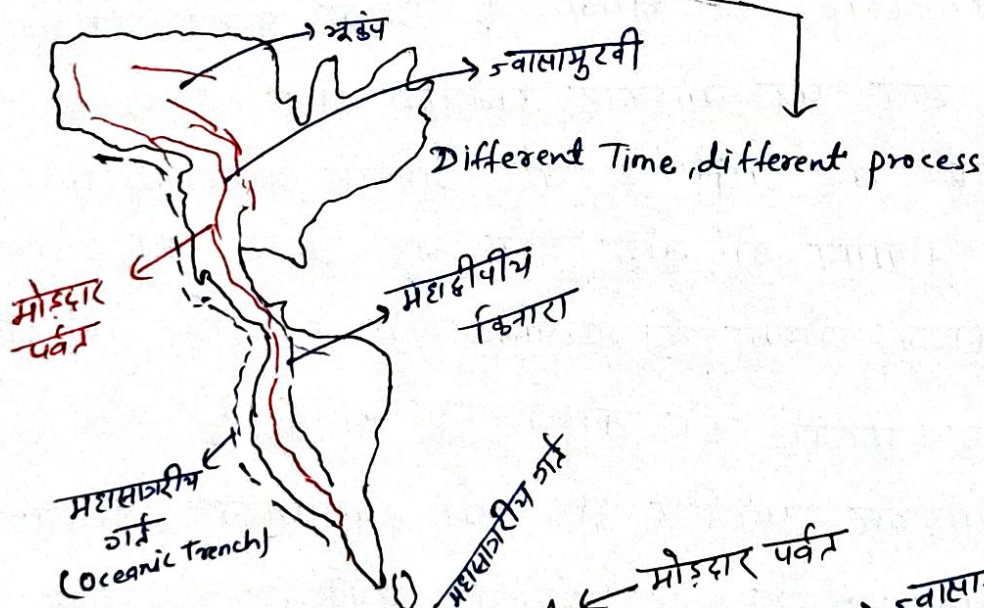 भूकंप
ज्वालामुखी
Different Time, different process
मोड़दार
पर्वत
महाद्वीपीय
किनारा
महासागरीय
गर्त
(Oceanic Trench)
महासागरीय गर्त
मोड़दार पर्वत